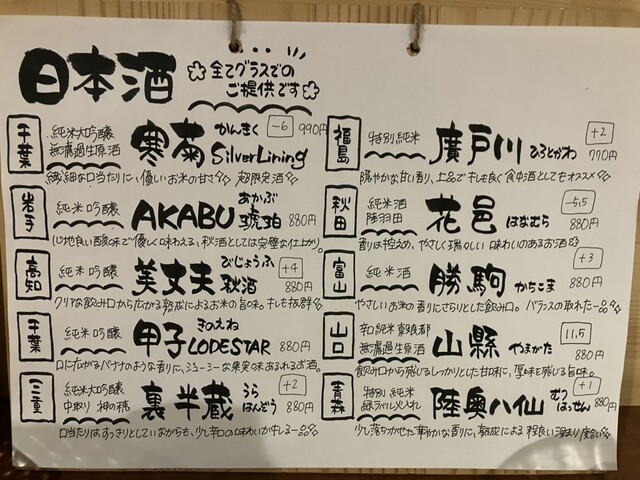 日本酒
✿全てグラスでの
ご提供です✿
千葉 純米大吟醸 無濾過生原酒 寒菊 かんきく SilverLining -6 990円
繊細な口当たりに、優しいお米の甘さ 超限定酒
岩手 純米吟醸 AKABU あかぶ 琥珀 880円
心地良い酸味で優しく味わえる、秋酒としては完璧な仕上がり。
高知 純米吟醸 美丈夫 びじょうふ 秋酒 +4 880円
クリアな飲み口から広がる熟成によるお米の旨味。キレも抜群
千葉 純米吟醸 甲子 きのえね LODESTAR 880円
口に広がるバナナのような香りに、ジューシーな果実味あふれるお酒。
三重 純米大吟醸 中取り 神の穂 裏半蔵 うら はんぞう +2 880円
口当たりはすっきりとしていながらも、少し辛口の味わいがキレる一品
福島 特別純米 廣戸川 ひろとがわ +2 770円
穏やかな甘い香り、上品でキレも良く食中酒としてもオススメ
秋田 純米酒 陸羽田 花邑 はなむら -5.5 880円
香りは控えめ、やさしく瑞々しい味わいのあるお酒
富山 純米酒 勝駒 かちこま +3 880円
やさしいお米の香りにさらりとした飲み口。バランスの取れた一品
山口 辛口純米 無濾過生原酒 山縣 やまがた 11.5 880円
飲み口から感じるしっかりとした甘味に、厚味を感じる旨味。
青森 特別純米 緑ラベル火入れ 陸奥八仙 むつ はっせん +1 880円
少し落ちつかせた華やかな香りに、熟成による程良い深まり度合い